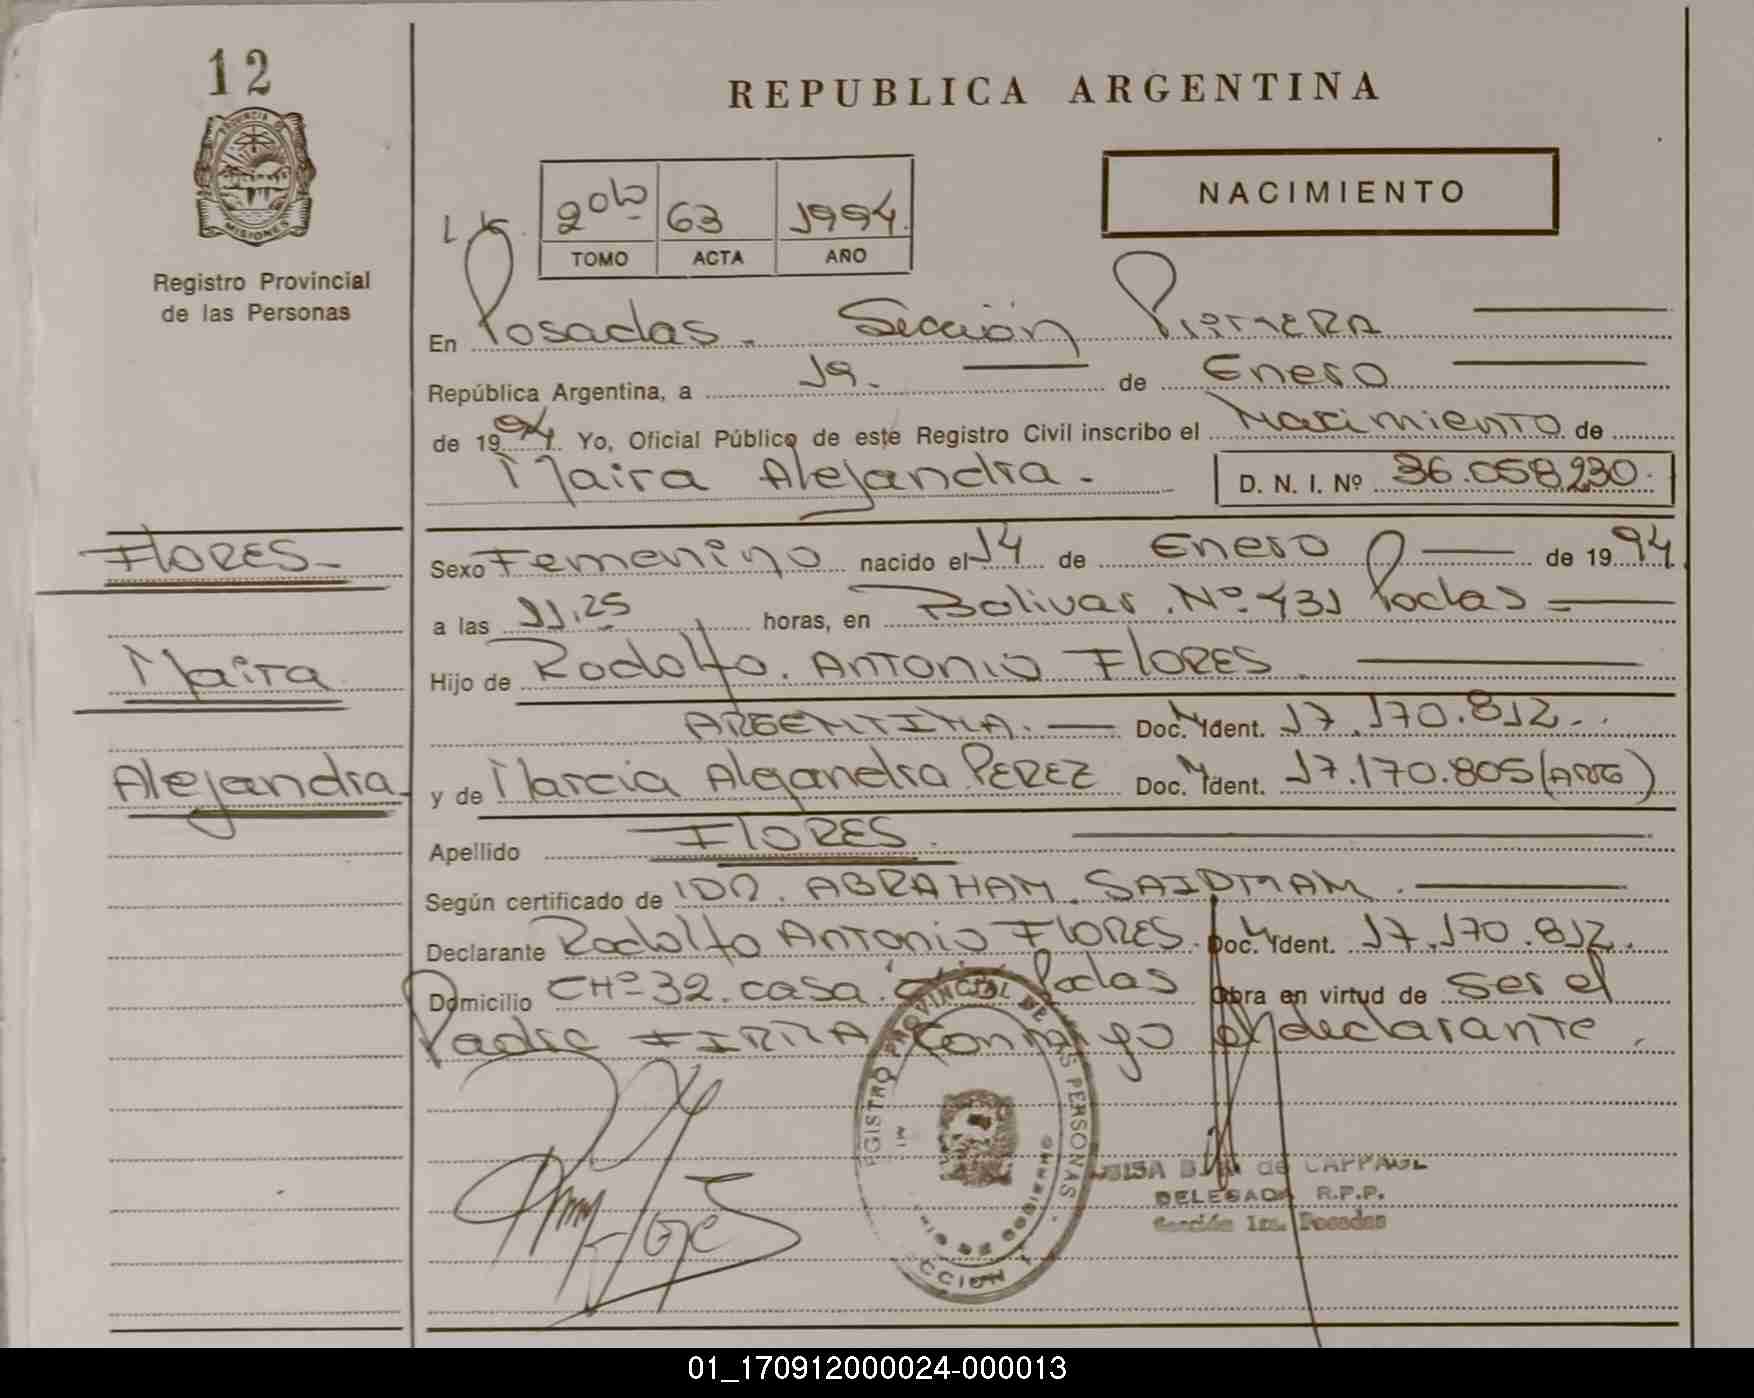 12
REPUBLICA ARGENTINA
PROVINCIA DE
MISIONES
Registro Provincial
de las Personas
2do 63 1994
TOMO ACTA AÑO
NACIMIENTO
En Posadas. Sección Primera
República Argentina, a 19. de Enero
de 1994. Yo, Oficial Público de este Registro Civil inscribo el Nacimiento de
Maira Alejandra. D. N. I. Nº 36.058.230.
FLORES
Maira
Alejandra
Sexo Femenino nacido el 14 de Enero de 1994
a las 11,25 horas, en Bolivar. Nº 431 Podas
Hijo de Rodolfo. Antonio FLORES
ARGENTINA. Doc. Ident. 17.170.812.
y de Marcia Alejandra PEREZ Doc. Ident. 17.170.805 (ARG)
Apellido FLORES.
Según certificado de DR. ABRAHAM. SAIDMAM.
Declarante Rodolfo Antonio FLORES. Doc. Ident. 17.170.812.
Domicilio CHº 32. casa Podas Obra en virtud de ser el
Padre FIRMA conmigo el declarante.
REGISTRO PROVINCIAL DE LAS PERSONAS
MIN. DE GOBIERNO
SECCION 1
LUISA B. de CAPPAUL
DELEGADA R.P.P.
Sección 1ra. Posadas
01_170912000024-000013